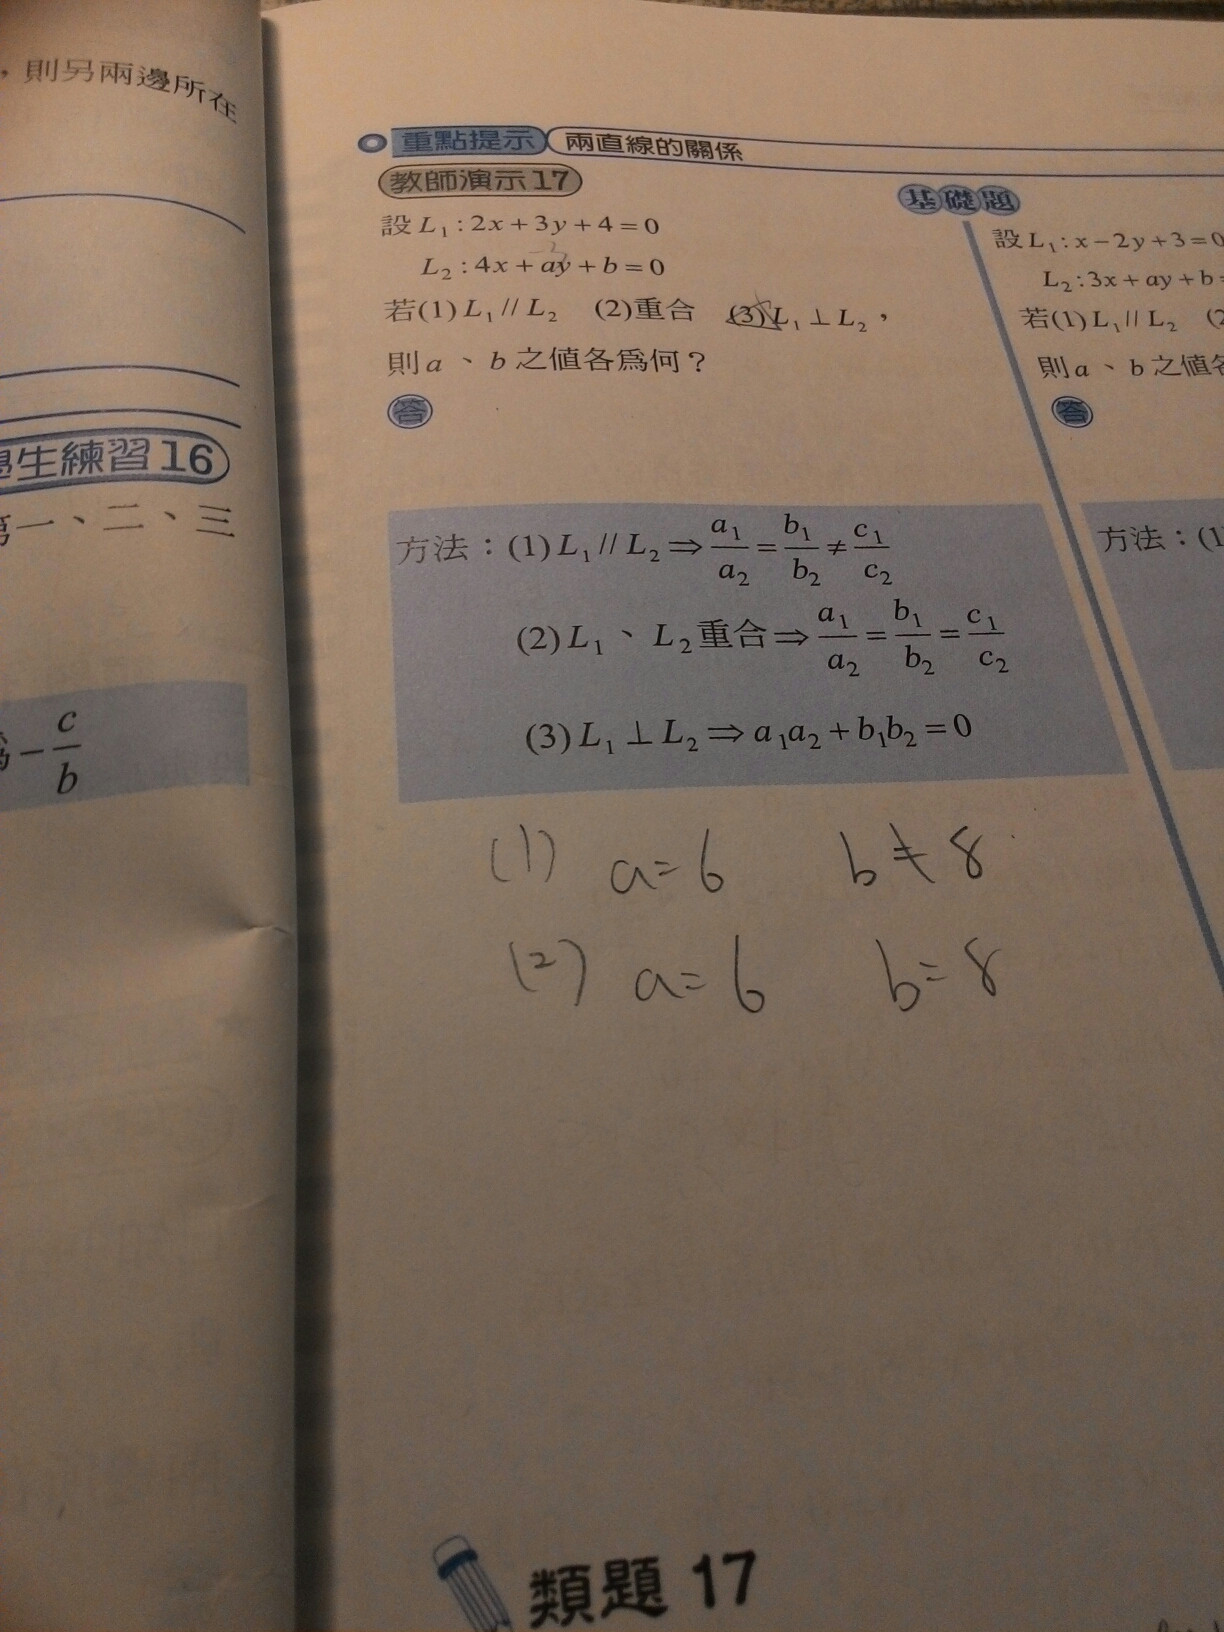 ，則另兩邊所在
學生練習16
第一、二、三
為−c/b
重點提示 兩直線的關係
教師演示17
基礎題
設L₁:2x+3y+4=0
L₂:4x+ay+b=0
若(1)L₁//L₂ (2)重合 (3)L₁⊥L₂，
則a、b之值各為何？
答
方法：(1)L₁//L₂⇒a₁/a₂=b₁/b₂≠c₁/c₂
(2)L₁、L₂重合⇒a₁/a₂=b₁/b₂=c₁/c₂
(3)L₁⊥L₂⇒a₁a₂+b₁b₂=0
(1) a=6 b≠8
(2) a=6 b=8
類題 17
設L₁:x−2y+3=0
L₂:3x+ay+b=
若(1)L₁//L₂ (2
則a、b之值各
答
方法：(1